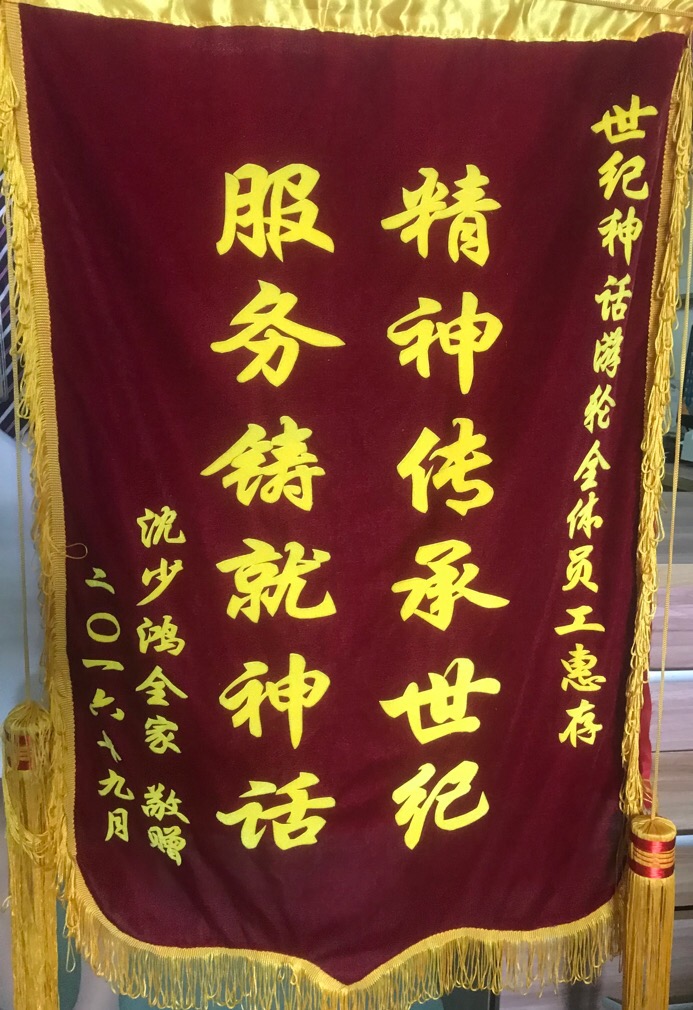 世纪神话游轮全体员工惠存
精神传承世纪
服务铸就神话
沈少鸿全家 敬赠
二〇一六年九月